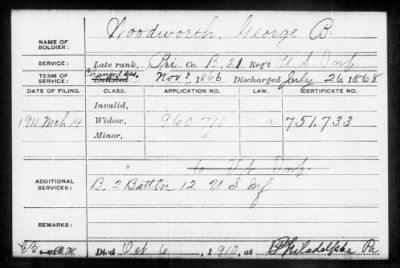 NAME OF SOLDIER: Woodworth, George B.
SERVICE: Late rank, Pri Co. B, 21 Reg't U S Inf
TERM OF SERVICE: Enlisted Nov 2, 1866 Discharged July 26, 1868
DATE OF FILING. CLASS. APPLICATION NO. LAW. CERTIFICATE NO.
Invalid,
1911 Mch 14 Widow, 960,710 751,733
Minor,
U S Inf
ADDITIONAL SERVICES: B, 2 Battln 12 U S Inf
REMARKS:
Died Oct 6, 1910, at Philadelphia Pa